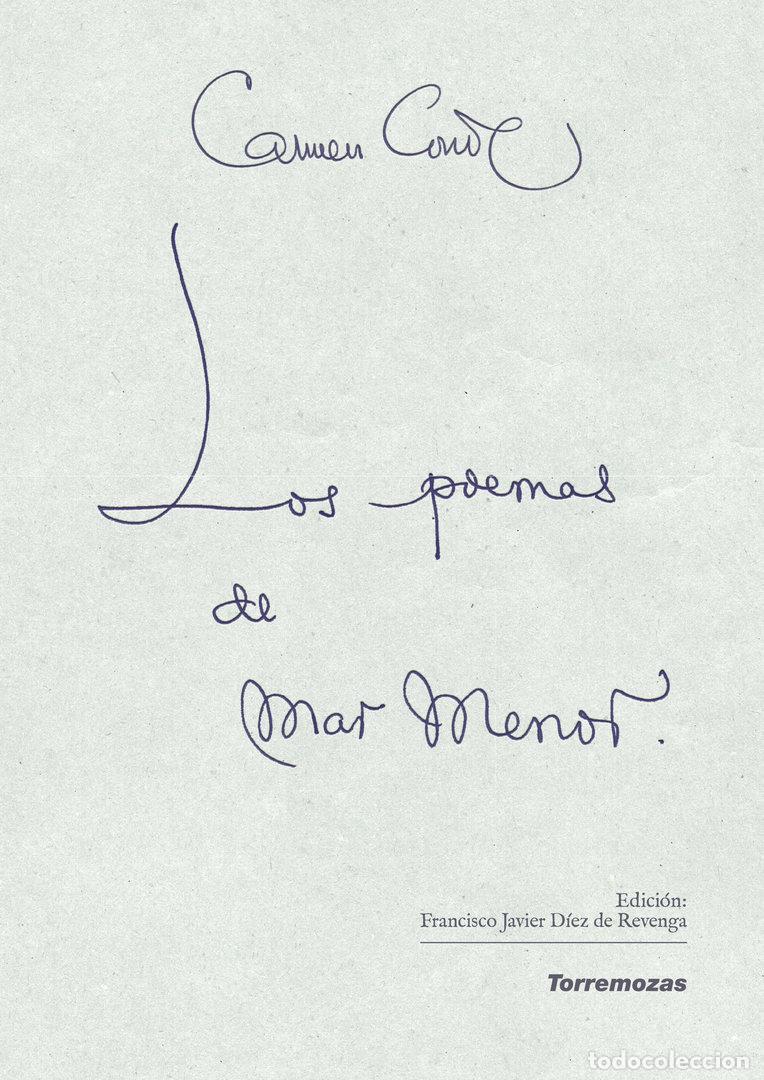 Carmen Conde
Los poemas
de
Mar Menor.
Edición:
Francisco Javier Díez de Revenga
Torremozas
todocoleccion